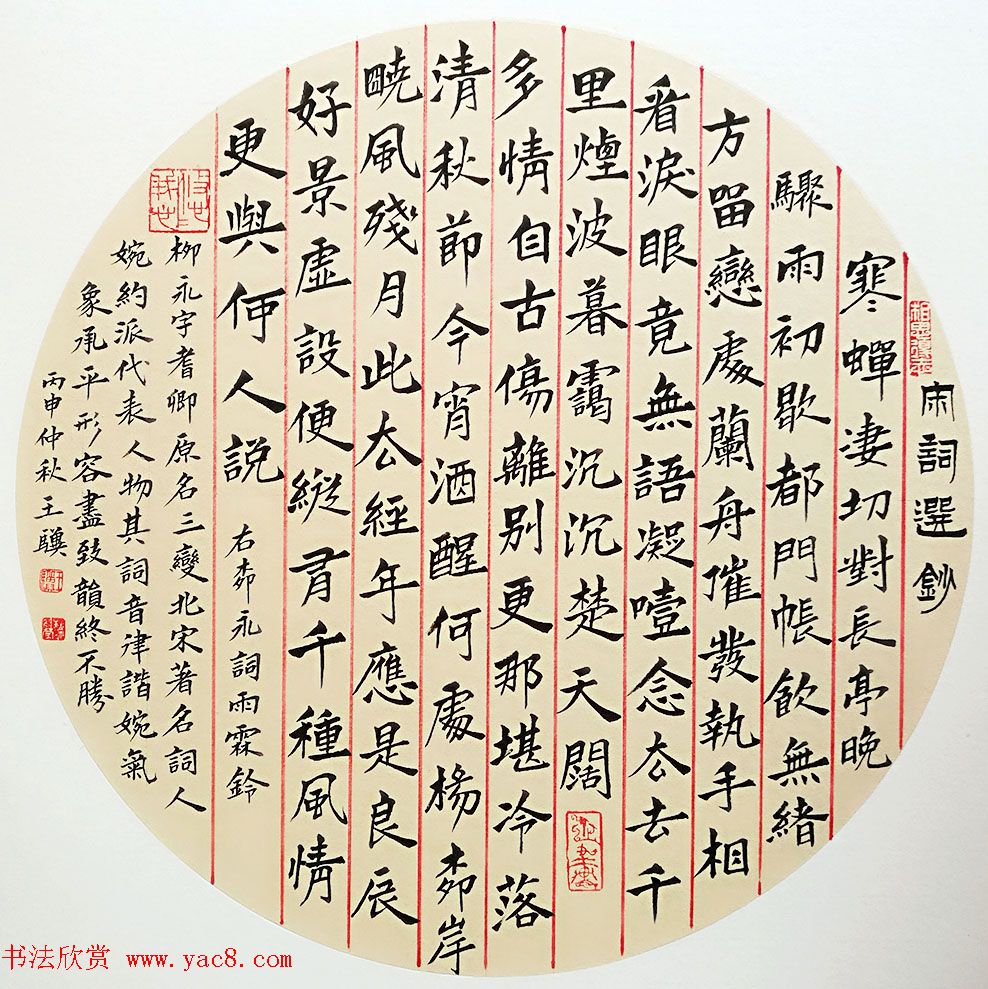 宋詞選鈔
寒蟬淒切對長亭晚
驟雨初歇都門帳飲無緒
方畱戀處蘭舟催發執手相
看淚眼竟無語凝噎念厺去千
里煙波暮靄沉沉楚天闊
多情自古傷離別更那堪冷落
清秋節今宵酒醒何處楊桺岸
曉風殘月此厺經年應是良辰
好景虛設便縱有千種風情
更與何人説
右桺永詞雨霖鈴
柳永字耆卿原名三變北宋著名詞人
婉約派代表人物其詞音律諧婉氣
象承平形容盡致韻終不勝
丙申仲秋王驥
书法欣赏 www.yac8.com